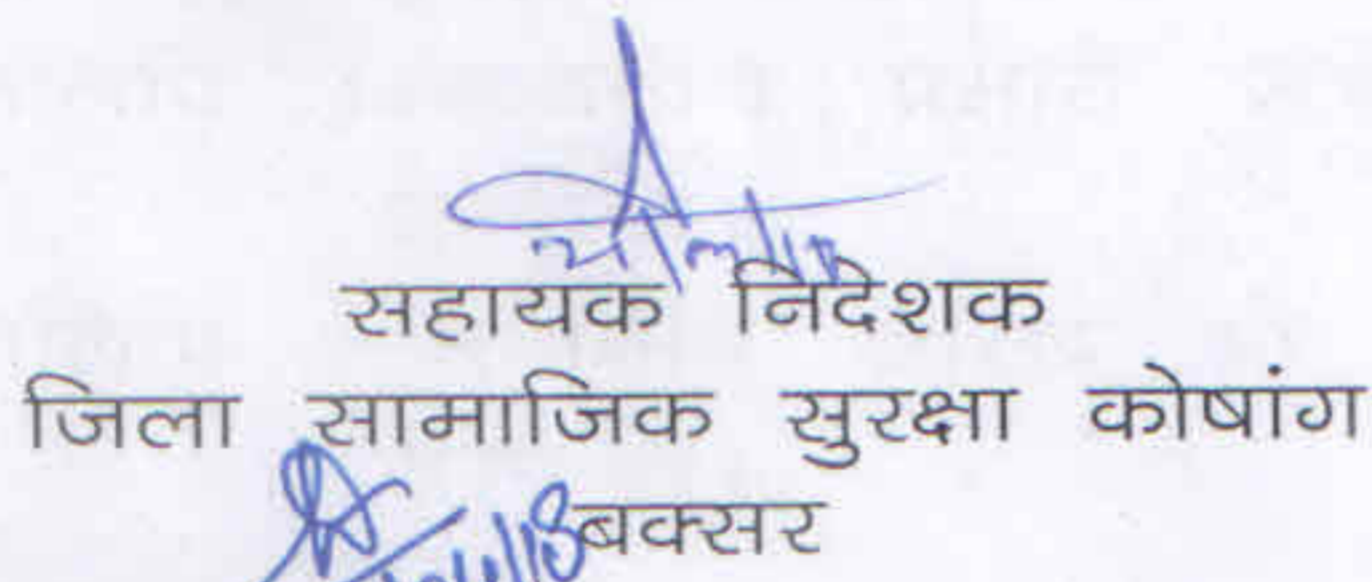 सहायक निदेशक
जिला सामाजिक सुरक्षा कोषांग
बक्सर